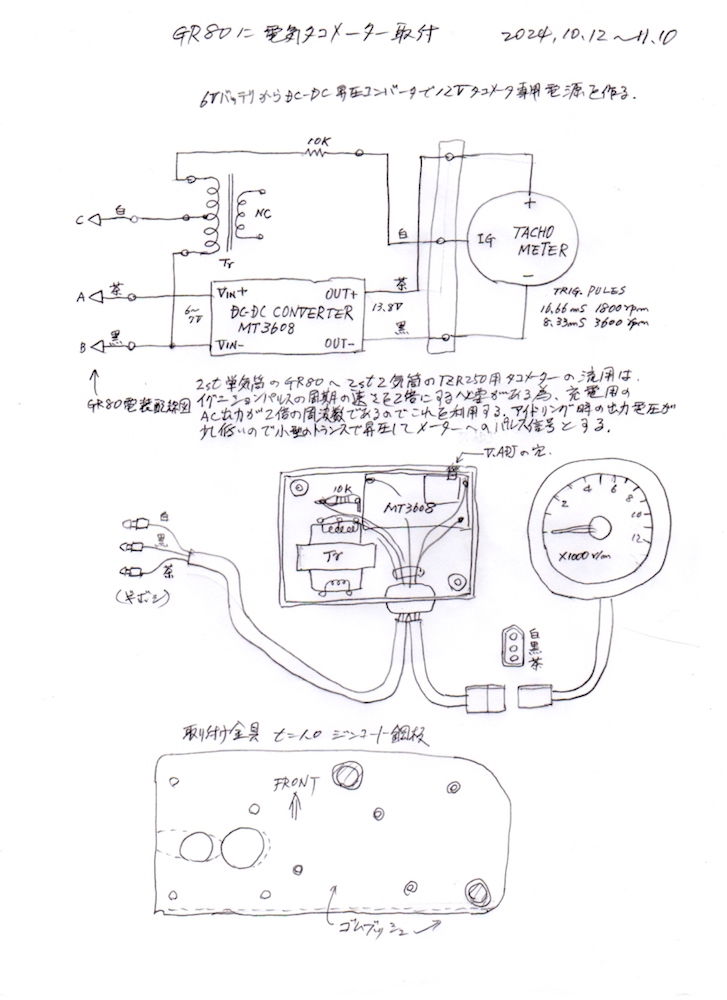 GR80に電気タコメーター取付 2024,10.12〜11.10
6VバッテリからDC-DC昇圧コンバータで12Vタコメータ専用電源を作る.
10K
C 白
NC
Tr
白
IG
+
TACHO
METER
−
茶
A 茶
VIN+ OUT+
6〜
7V
DC-DC CONVERTER
MT3608
13.8V
B 黒
VIN- OUT-
黒
TRIG. PULES
16.66mS 1800rpm
8.33mS 3600rpm
GR80電装配線図
2st単気筒のGR80へ2st2気筒のTZR250用タコメーターの流用は,
イグニションパルスの周期の速さを2倍にする必要がある為、充電用の
AC出力が2倍の周波数であるのでこれを利用する.アイドリング時の出力電圧が
少し低いので小型のトランスで昇圧してメーターへのパルス信号とする.
V.ADJの穴
10K
MT3608
Tr
白
黒
茶
(ギボシ)
2
4
6
8
10
12
X1000 r/m
白
黒
茶
取り付け金具 t=1.0 ジンコート鋼板
FRONT
ゴムブッシュ